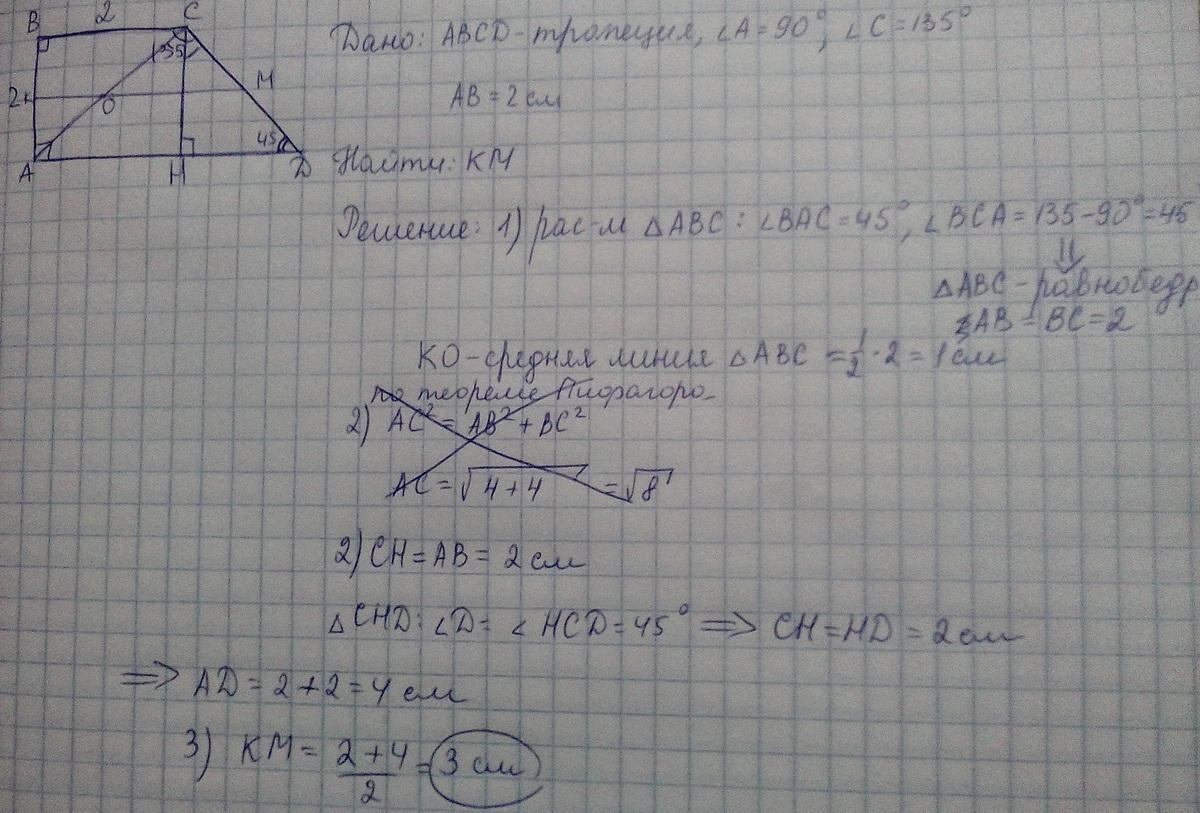 B 2 C
135
2 K O M
45
A H D
Дано: ABCD - трапеция, ∠A = 90°, ∠C = 135°
AB = 2 см
Найти: KM
Решение: 1) рас-м △ABC : ∠BAC = 45°, ∠BCA = 135 - 90° = 45
⇓
△ABC - равнобедр
AB = BC = 2
KO - средняя линия △ABC = 1/2 · 2 = 1 см
по теореме Пифагора
2) AC² = AB² + BC²
AC = √4+4 = √8
2) CH = AB = 2 см
△CHD: ∠D = ∠HCD = 45° ⇒ CH = HD = 2 см
⇒ AD = 2 + 2 = 4 см
3) KM = 2 + 4 / 2 = 3 см